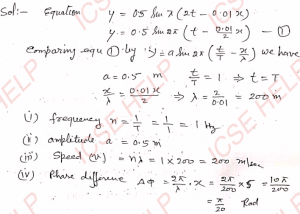 Sol:- Equation y = 0.5 sin π (2t - 0.01x)
y = 0.5 sin 2π (t - 0.01/2 x) - ①
Comparing equ ① by y = a sin 2π (t/T - x/λ) we have
a = 0.5 m t/T = 1 ⇒ t = T
x/λ = 0.01x/2 ⇒ λ = 2/0.01 = 200 m
(i) frequency n = 1/T = 1/1 = 1 Hz
(ii) amplitude a = 0.5 m
(iii) Speed (v) = nλ = 1 × 200 = 200 m/sec
(iv) Phase difference Δϕ = 2π/λ . x = 2π/200 × 5 = 10π/200
= π/20 Rad
ICSE HELP